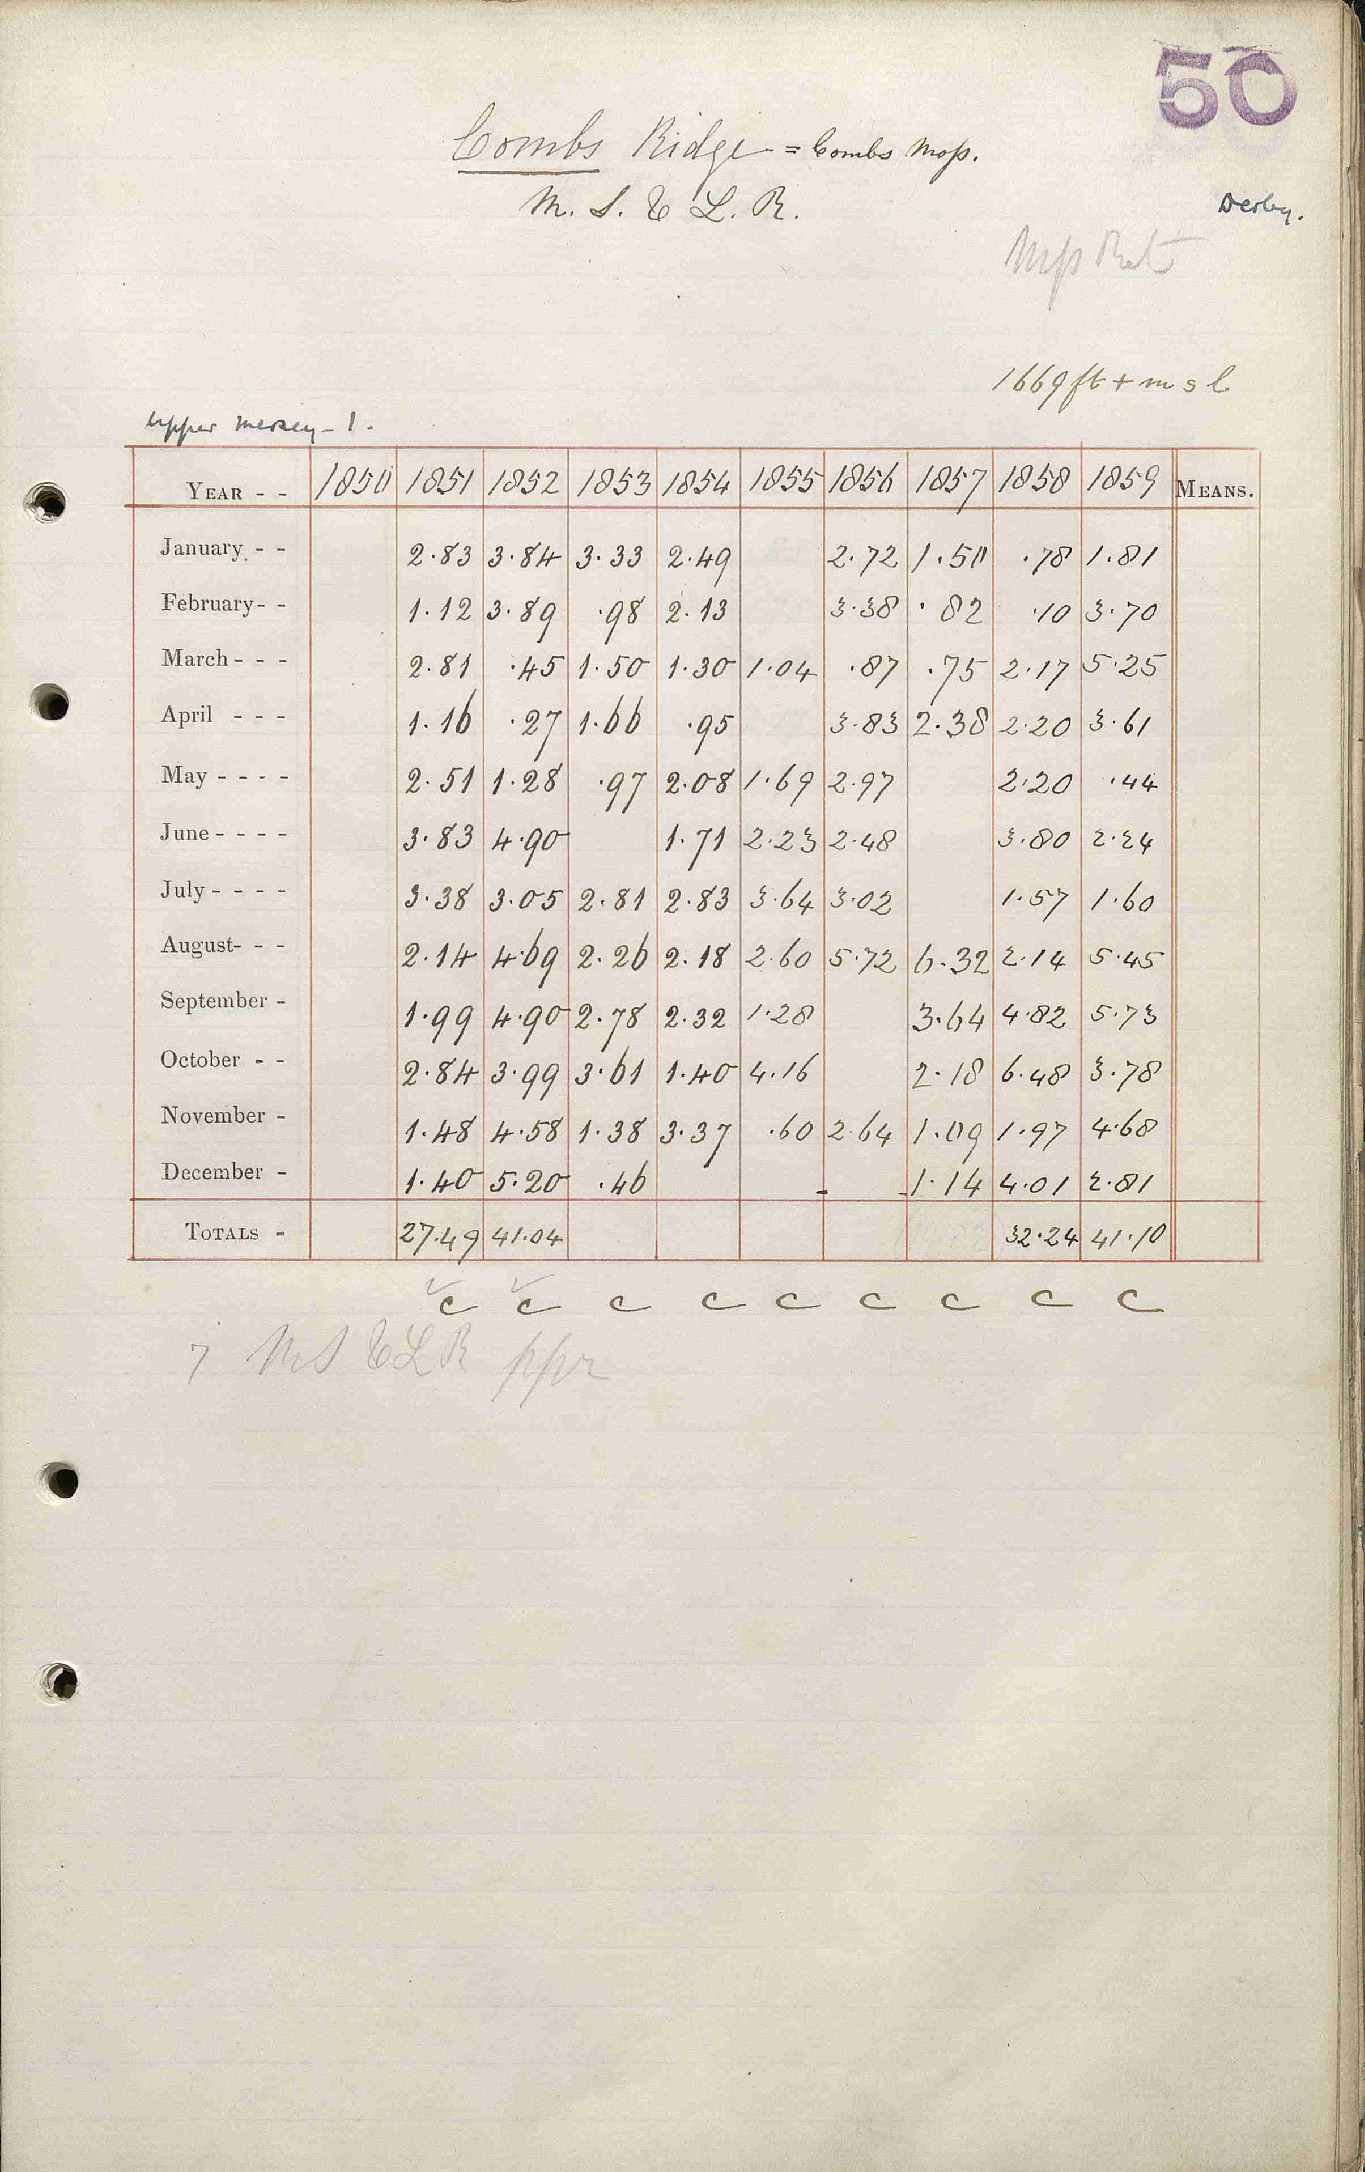 50
Combs Ridge = Combs Moss.
M. S. & L. R.
Derby.
1669 ft + m s l
Upper Mersey - 1.
YEAR - - 1850 1851 1852 1853 1854 1855 1856 1857 1858 1859 MEANS.
January - - 2.83 3.84 3.33 2.49 2.72 1.50 .78 1.81
February - - 1.12 3.89 .98 2.13 3.38 .82 .10 3.70
March - - - 2.81 .45 1.50 1.30 1.04 .87 .75 2.17 5.25
April - - - 1.16 .27 1.66 .95 3.83 2.38 2.20 3.61
May - - - - 2.51 1.28 .97 2.08 1.69 2.97 2.20 .44
June - - - - 3.83 4.90 1.71 2.23 2.48 3.80 2.24
July - - - - 3.38 3.05 2.81 2.83 3.64 3.02 1.57 1.60
August - - - 2.14 4.69 2.26 2.18 2.60 5.72 6.32 2.14 5.45
September - 1.99 4.90 2.78 2.32 1.28 3.64 4.82 5.73
October - - 2.84 3.99 3.61 1.40 4.16 2.18 6.48 3.78
November - 1.48 4.58 1.38 3.37 .60 2.64 1.09 1.97 4.68
December - 1.40 5.20 .46 - - 1.14 4.01 2.81
TOTALS - 27.49 41.04 32.24 41.10
c c c c c c c c c
7 M S & L R ppr